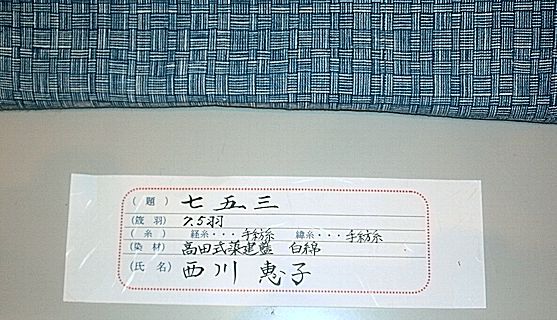 (題) 七五三
(筬羽) 7.5羽
(糸) 経糸・・・手紡糸 緯糸・・・手紡糸
(染材) 高田式築建藍 白綿
(氏名) 西川 恵子